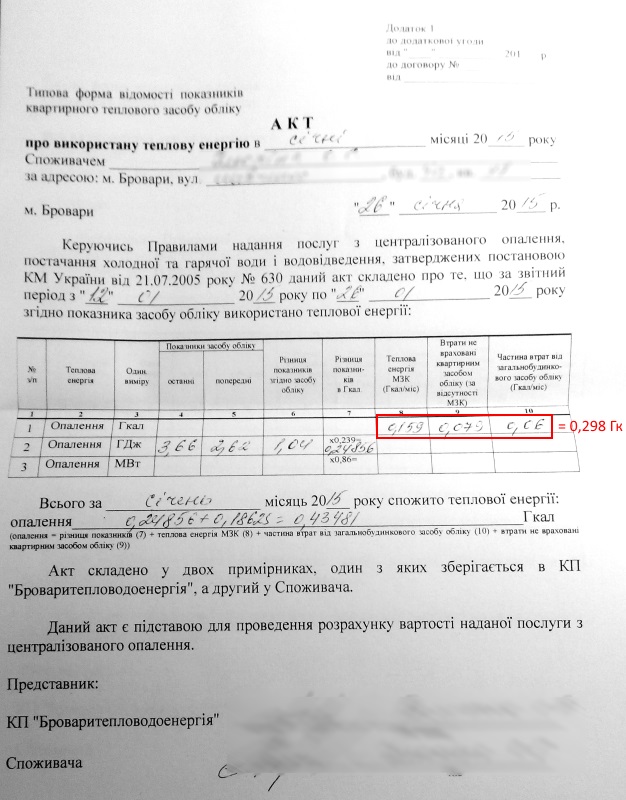 Додаток 1
до додаткової угоди
від " " 201 р
до договору №
від
Типова форма відомості показників
квартирного теплового засобу обліку
АКТ
про використану теплову енергію в січні місяці 2015 року
Споживачем
за адресою: м. Бровари, вул
м. Бровари "26" січня 2015 р.
Керуючись Правилами надання послуг з централізованого опалення,
постачання холодної та гарячої води і водовідведення, затверджених постановою
КМ України від 21.07.2005 року № 630 даний акт складено про те, що за звітний
період з "12" 01 2015 року по "26" 01 2015 року
згідно показника засобу обліку використано теплової енергії:
№ з/п Теплова енергія Один. виміру Показники засобу обліку останні попередні Різниця показників згідно засобу обліку Різниця показни-ків в Гкал Теплова енергія МЗК (Гкал/міс) Втрати не враховані квартирним засобом обліку (за відсутності МЗК) Частина втрат від загальнобудинко-вого засобу обліку (Гкал/міс)
1 2 3 4 5 6 7 8 9 10
1 Опалення Гкал 0,159 0,079 0,06 = 0,298 Гк
2 Опалення ГДж 3,66 2,62 1,04 х0,239= 0,24856
3 Опалення МВт х0,86=
Всього за січень місяць 2015 року спожито теплової енергії:
опалення 0,24856+0,18625=0,43481 Гкал
(опалення = різниця показників (7) + теплова енергія МЗК (8) + частина втрат від загальнобудинкового засобу обліку (10) + втрати не враховані
квартирним засобом обліку (9))
Акт складено у двох примірниках, один з яких зберігається в КП
"Броваритепловодоенергія", а другий у Споживача.
Даний акт є підставою для проведення розрахунку вартості наданої послуги з
централізованого опалення.
Представник:
КП "Броваритепловодоенергія"
Споживача